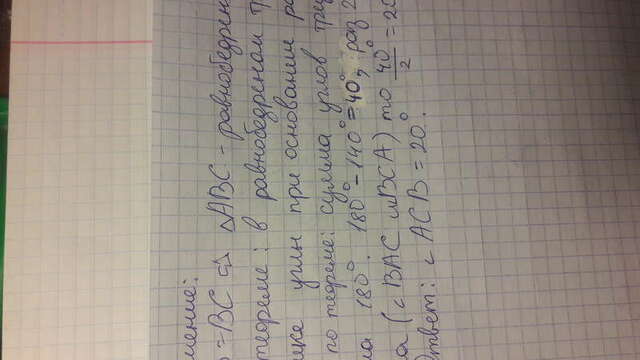 =BC ⇒ △ABC - равнобедрен
теореме: в равнобедреном
углы при основании
по теореме: сумма углов
180°. 180° - 140° = 40°, раз 2
(∠BAC и BCA) то 40°/2 = 20
Ответ: ∠ACB = 20°.